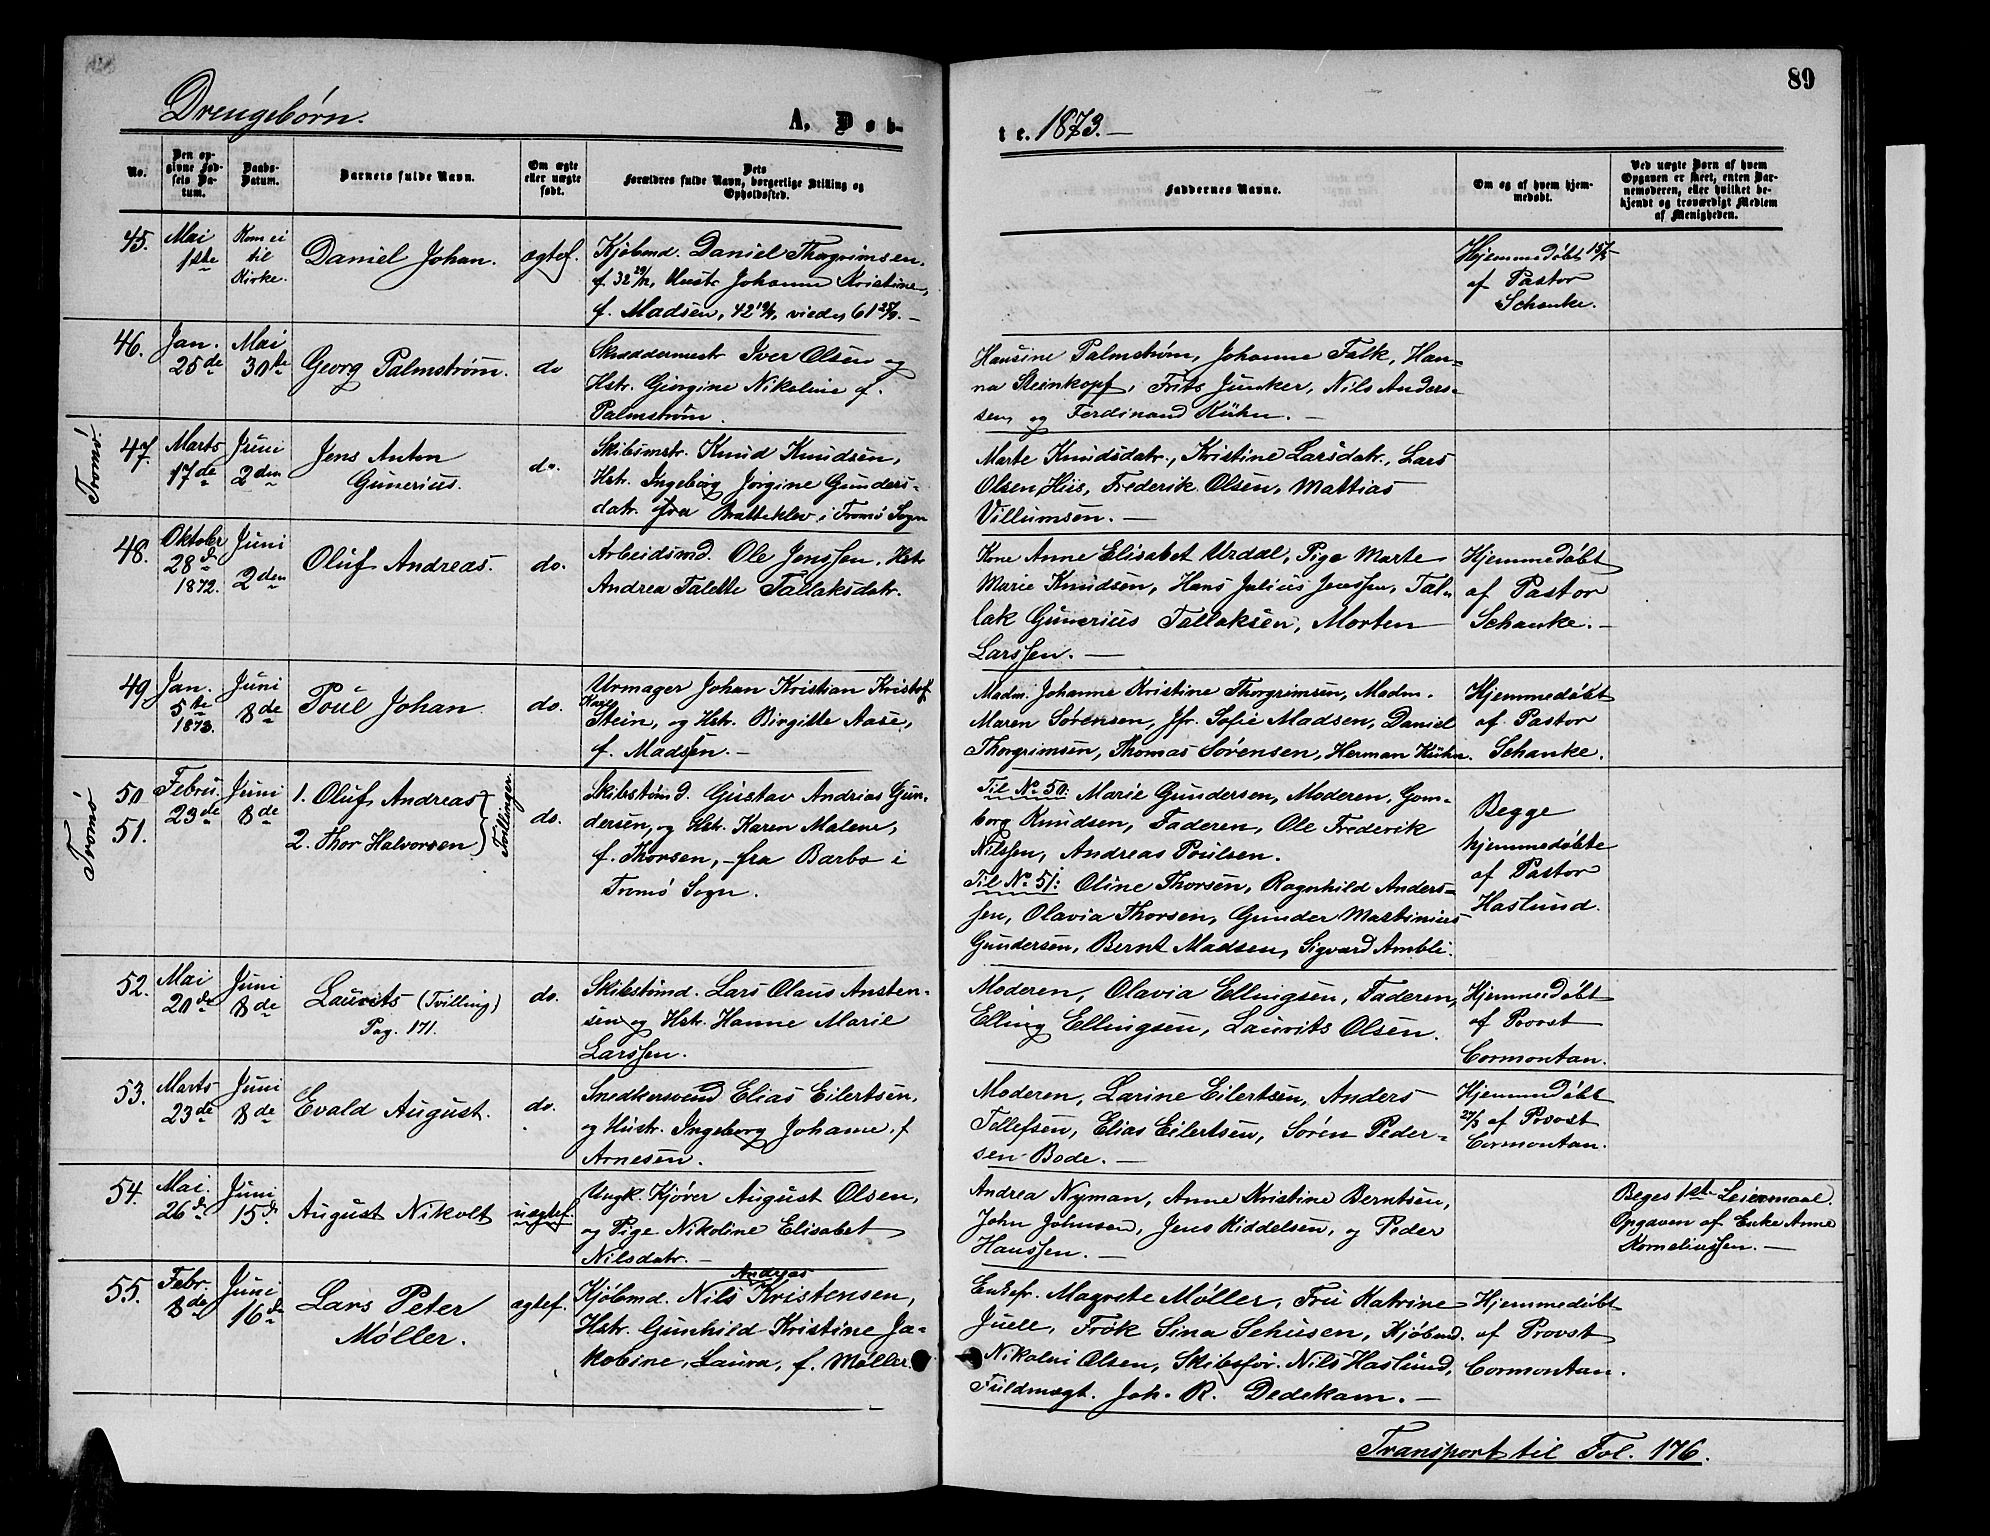 89
Drengebørn.
A. Døb-
te. 1873.
No.
Den op-
givne Fød-
sels Da-
tum.
Daabs-
Datum.
Barnets fulde Navn.
Om ægte
eller uægte
født.
Dets
Forældres fulde Navn, borgerlige Stilling og
Opholdssted.
Faddernes Navne.
Om og af hvem hjem-
medøbt.
Ved uægte Børn af hvem
Opgaven er skeet, enten Bar-
nemoderen, eller hvilket be-
kjendt og troværdigt Medlem
af Menigheden.
45. Mai
1ste
Kom ei
til
Kirke.
Daniel Johan.
ægtef.
Kjøbmd. Daniel Thorgrimsen,
f. 32 29/12, Hustr. Johanne Kristine,
f. Madsen, 42 19/1, viede, 61 27/9. –
Hjemmedøbt 15/5
af Pastor
Schanke.
46. Jan.
25de
Mai
30te
Georg Palmstrøm.
do
Skræddermestr Iver Olsen og
Hstr. Giorgine Nikoline f.
Palmstrøm.
Hansine Palmstrøm, Johanne Falk, Han-
na Steinkopf, Frits Junker, Nils Anders-
sen, og Ferdinand Kühn. –
Tromø.
47. Marts
17de
Juni
2den
Jens Anton
Gunerius.
do.
Skibsmstr. Knud Knudsen,
Hstr. Ingeborg Jorgine Gunders-
datr. fra Bratteklev i Tromø Sogn
Marte Knudsdatr., Kristine Larsdatr., Lars
Olsen Hiis, Frederik Olsen, Mattias
Villumsen. –
48. Oktober
28de
1872.
Juni
2den
Oluf Andreas.
do.
Arbeidsmd. Ole Jenssen, Hstr
Andrea Talette Tallaksdatr.
Kone Anne Elisabet Urdal, Pige Marte
Marie Knudsen, Hans Julius Jenssen, Tal-
lak Gunerius Tallaksen, Morten
Larssen. –
Hjemmedøbt
af Pastor
Schanke. –
49 Jan.
5te
1873.
Juni
8de
Poul Johan
do.
Urmager Johan Kristian Kristof.
Stein, og Hstr. Birgitte Aase,
f. Madssen. –
Madm. Johanne Kristine Thorgrimsen, Madm.
Maren Sørensen, Jfr. Sofie Madsen, Daniel
Thorgrimsen, Thomas Sørensen, Herman Kühn.
Hjemmedøbt
af Pastor
Schanke.
Tromø
50
51.
Febru.
23de
Juni
8de
1. Oluf Andreas
2. Thor Halvorsen
Tvillinger.
do.
Skibstømd. Gustav Andrias Gun-
dersen, og Hstr. Karen Malene,
f. Thorsen, – fra Barbo i
Tromø Sogn.
Til No 50: Marie Gundersen, Moderen, Gom-
borg Knudsen, Faderen, Ole Frederik
Nilssen, Andreas Poulsen.
Til No 51: Oline Thorsen, Ragnhild Anders-
sen, Olavia Thorsen, Gunder Martinius
Gundersen, Bernt Madsen, Sigvard Ambli.
Begge
hjemmedøbte
af Pastor
Haslund.
52. Mai
20de
Juni
8de
Laurits (Tvilling)
Pag. 171.
do.
Skibstømd. Lars Olaus Austen-
sen og Hstr. Hanne Marie
Larssen.
Moderen, Olavia Ellingsen, Faderen,
Elling Ellingsen, Laurits Olsen.
Hjemmedøbt
af Provst
Cormontan.
53. Marts
23de
Juni
8de
Evald August.
do.
Snedkersvend Elias Eilertsen,
og Hustr. Ingeborg Johanne, f
Arnesen.
Moderen, Larine Eilertsen, Anders
Tellefsen, Elias Eilertsen, Søren Peder-
sen Bode. –
Hjemmedøbt
27/3 af Provst
Cormontan.
54. Mai.
26de
Juni
15de
August Nikolt
uægtef.
Ungk. Kjører August Olsen,
og Pige Nikoline Elisabet
Nilsdatr. –
Andrea Nyman, Anne Kristine Berntsen,
John Johnsen, Jens Kiddelsen, og Peder
Hanssen. –
Beges 1ste Leiermaal.
Opgaven af Enke Anne
Kornelinssen. –
55. Febr.
8de
Juni
16de
Lars Peter
Møller.
ægtef.
Andreas
Kjøbmd. Nils Kristensen,
Hstr. Gunhild Kristine Ja-
kobine, Laura, f. Møller.
Enkefr. Magrete Møller, Fru Katrine
Juell, Frøk Sina Schusen, Kjøbmd.
Nikolai Olsen, Skibsfør. Nils Haslund,
Fuldmægt. Joh. R. Dedekam. –
Hjemmedøbt
af Provst
Cormontan.
Transport til Fol. 176.